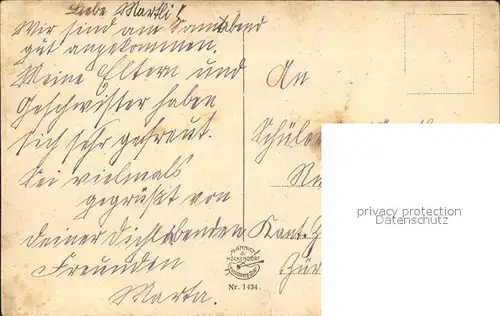 Liebe Martli!
Wir sind am Sonnabend
gut angekommen.
Meine Eltern und
Geschwister haben
sich sehr gefreut.
Sei vielmals
gegrüßt von
deiner Dich liebenden
Freunden
Marta.
An
Schüler
Kant.
Zür
privacy protection
Datenschutz
Nr. 1434.